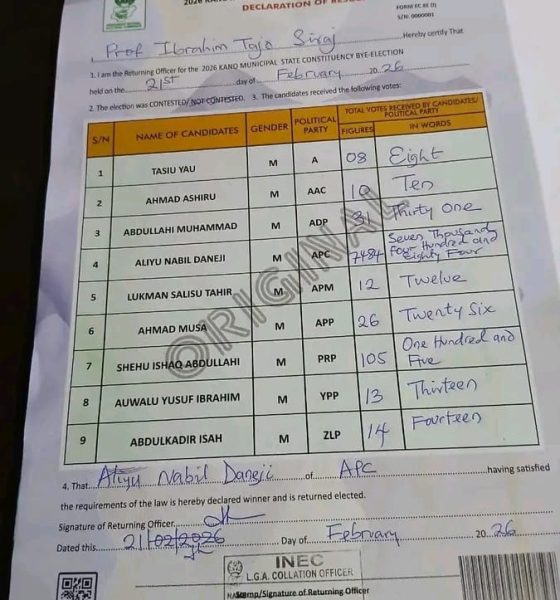 DECLARATION OF
FORM EC 8E (I)
S/N. 0000001
Prof Ibrahim Tajo Siraj Hereby certify That
1. I am the Returning Officer for the 2026 KANO MUNICIPAL STATE CONSTITUENCY BYE-ELECTION
held on the 21st day of February 20 26
2. The election was CONTESTED/ NOT CONTESTED. 3. The candidates received the following votes:
S/N NAME OF CANDIDATES GENDER POLITICAL PARTY TOTAL VOTES RECEIVED BY CANDIDATES/ POLITICAL PARTY
FIGURES IN WORDS
1 TASIU YAU M A 08 Eight
2 AHMAD ASHIRU M AAC 10 Ten
3 ABDULLAHI MUHAMMAD M ADP 31 Thirty One
4 ALIYU NABIL DANEJI M APC 7484 Seven Thousand Four Hundred and Eighty Four
5 LUKMAN SALISU TAHIR M APM 12 Twelve
6 AHMAD MUSA M APP 26 Twenty Six
7 SHEHU ISHAQ ABDULLAHI M PRP 105 One Hundred and Five
8 AUWALU YUSUF IBRAHIM M YPP 13 Thirteen
9 ABDULKADIR ISAH M ZLP 14 Fourteen
ORIGINAL
4. That Aliyu Nabil Daneji of APC having satisfied
the requirements of the law is hereby declared winner and is returned elected.
Signature of Returning Officer
Dated this 21/02/2026 Day of February 20 26
INEC
L.G.A. COLLATION OFFICER
Stamp/Signature of Returning Officer